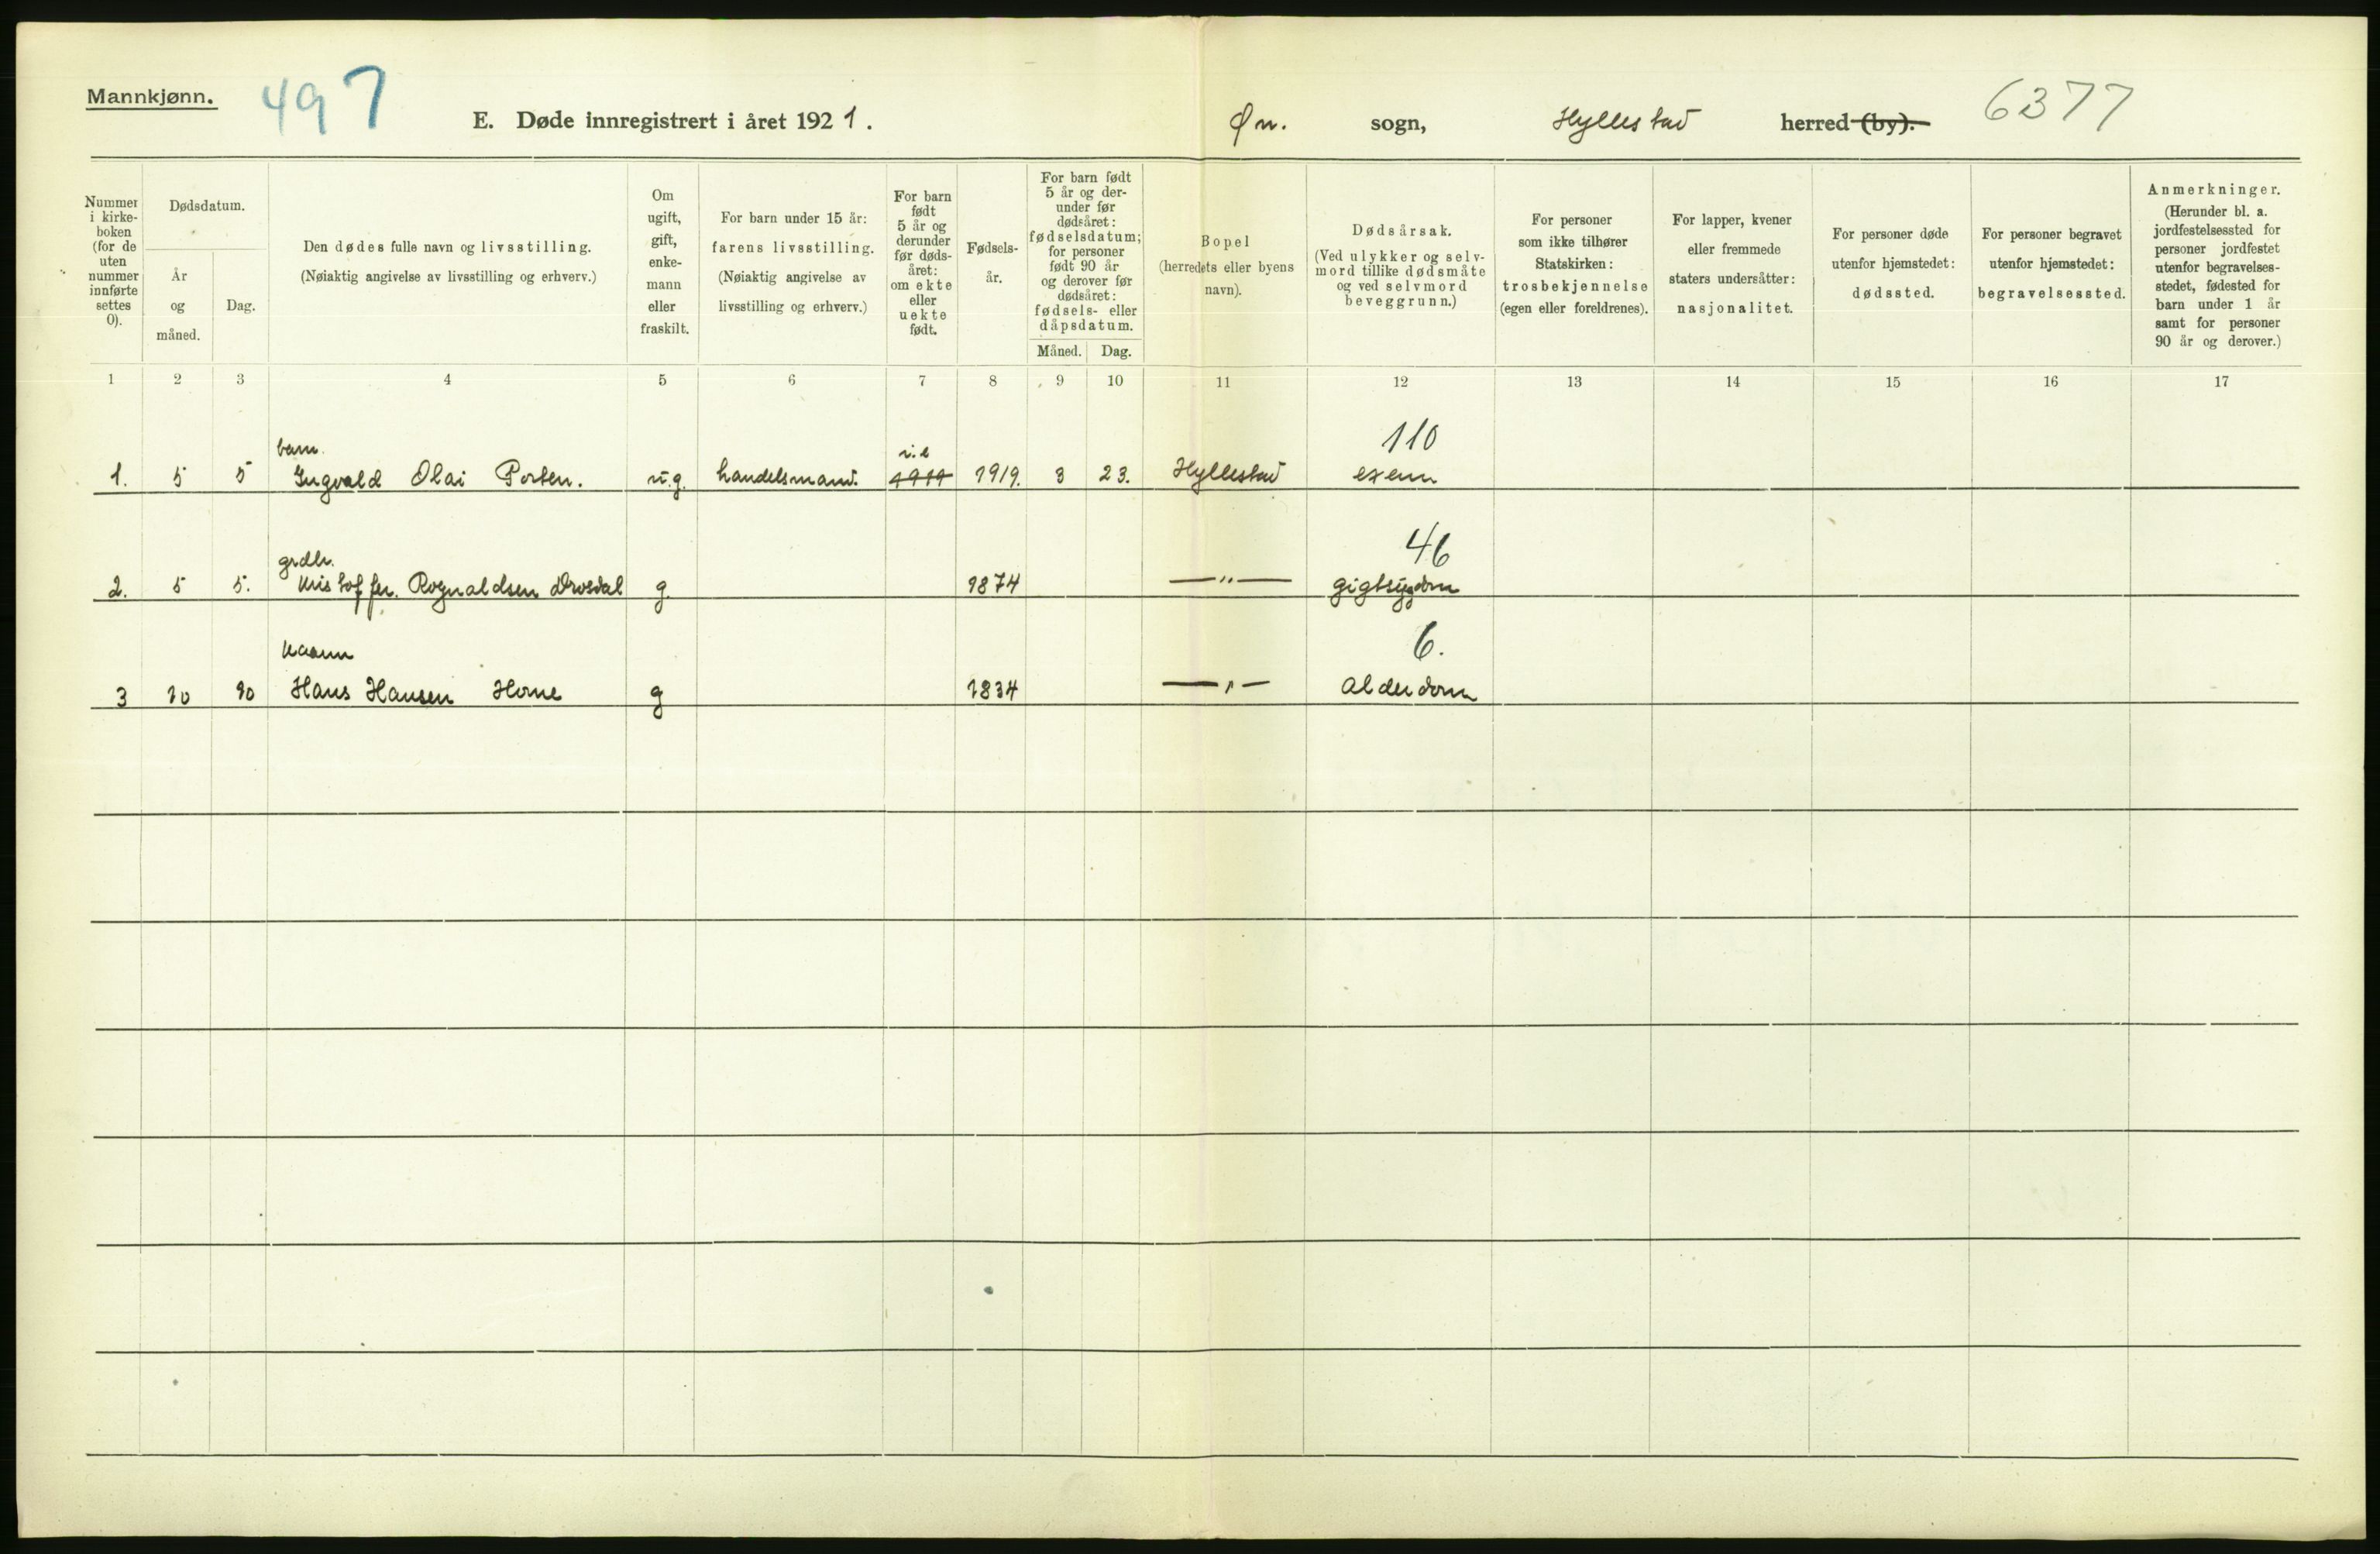 Mannkjønn.
497
E. Døde innregistrert i året 1921.
Øn. sogn, Hyllestad herred (by).
6377
Nummer i kirke-boken (for de uten nummer innførte settes 0).
Dødsdatum.
År og måned.
Dag.
Den dødes fulle navn og livsstilling.
(Nøiaktig angivelse av livsstilling og erhverv.)
Om ugift, gift, enke-mann eller fraskilt.
For barn under 15 år:
farens livsstilling.
(Nøiaktig angivelse av livsstilling og erhverv.)
For barn født 5 år og derunder før døds-året: om ekte eller uekte født.
Fødsels-år.
For barn født 5 år og der-under før dødsåret: fødselsdatum; for personer født 90 år og derover før dødsåret: fødsels- eller dåpsdatum.
Måned. Dag.
Bopel
(herredets eller byens navn).
Dødsårsak.
(Ved ulykker og selv-mord tillike dødsmåte og ved selvmord beveggrunn.)
For personer som ikke tilhører Statskirken: trosbekjennelse (egen eller foreldrenes).
For lapper, kvener eller fremmede staters undersåtter: nasjonalitet.
For personer døde utenfor hjemstedet: dødssted.
For personer begravet utenfor hjemstedet: begravelsessted.
Anmerkninger.
(Herunder bl. a. jordfestelsessted for personer jordfestet utenfor begravelses-stedet, fødested for barn under 1 år samt for personer 90 år og derover.)
1 2 3 4 5 6 7 8 9 10 11 12 13 14 15 16 17
barn. i.e 110
1. 5 5 Ingvald Olai Porten. u.g. handelsmand. 1919 1919. 3 23. Hyllestad exem
grdbr. 46
2. 5 5. Kristoffer. Rognaldsen g. 1874 —"— gigtsygdom
kaarm 6.
3 10 10 Hans Hansen Horne g 1834 —"— Alderdom